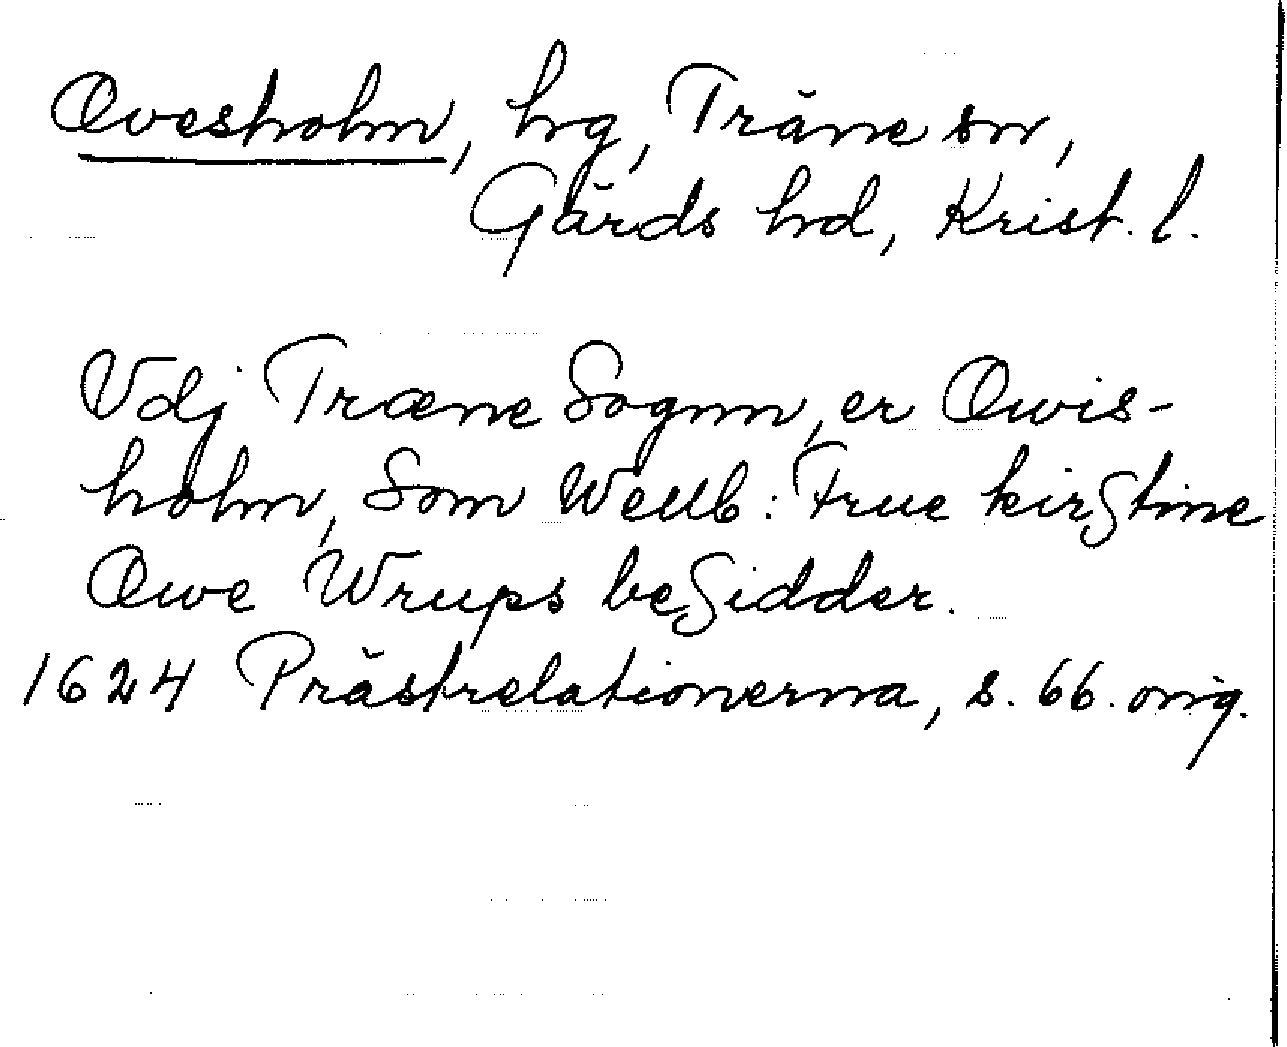 Ovesholm, hg, Träne sn,
Gärds hd, Krist. l.
Vdj Træne Sognn, er Owis-
holm, Som Wellb: Frue kirStine
Owe Wrups beSidder.
1624 Prästrelationerna, s. 66. orig.